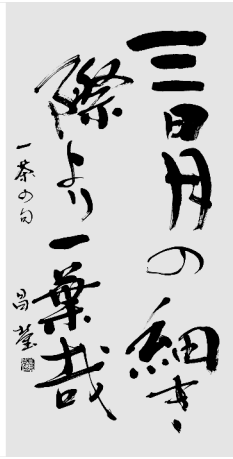 三日月の細き
際より一葉哉
一茶の句
昌莹